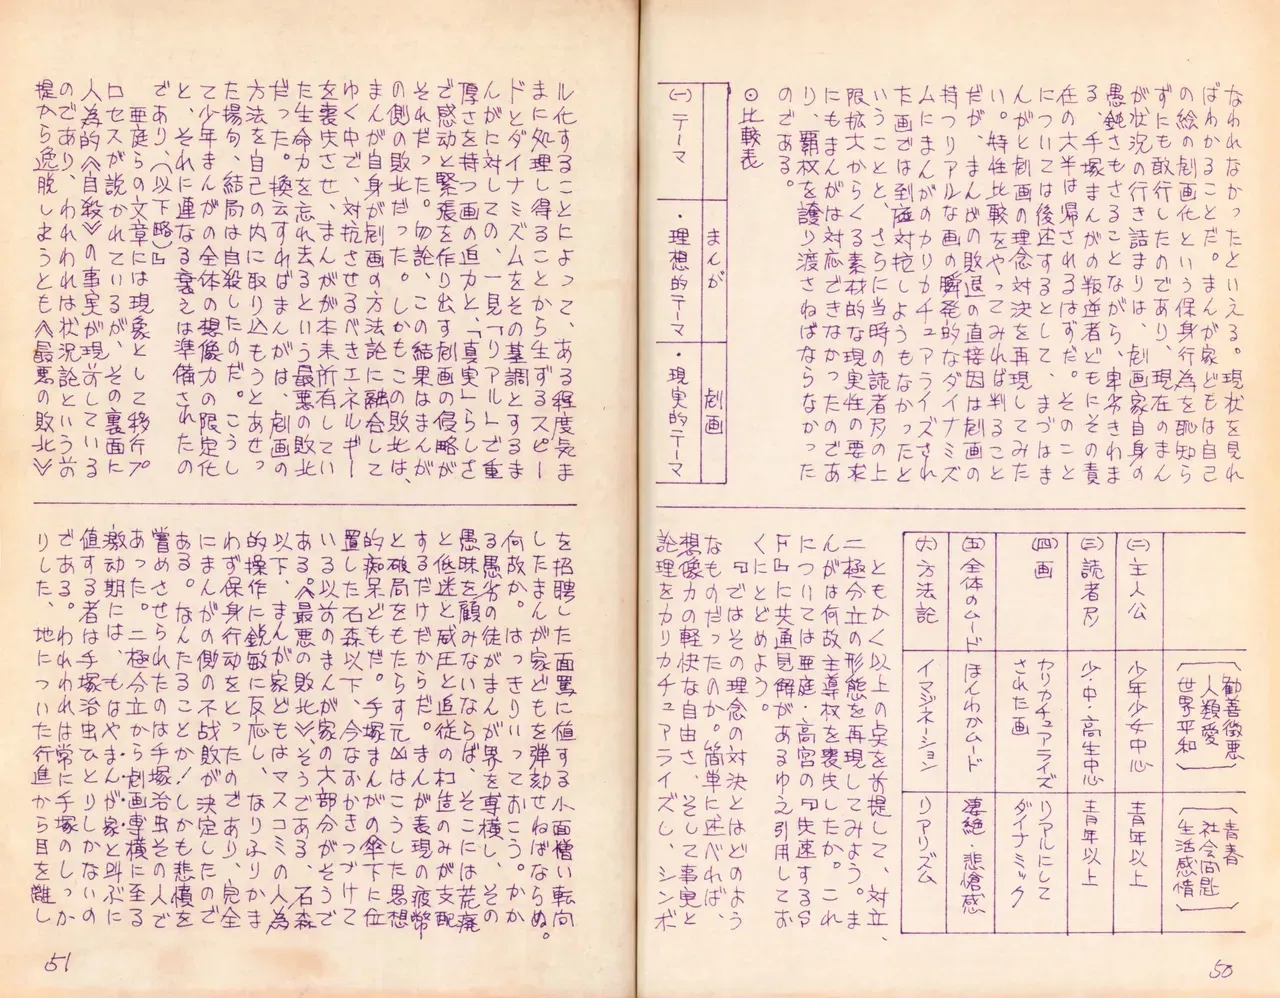 なわれなかったといえる。現状を見れ
ばわかることだ。まんが家どもは自己
の絵の劇画化という保身行為を恥知ら
ずにも敢行したのであり、現在のまん
が状況の行き詰まりは、劇画家自身の
愚鈍さもさることながら、卑劣きわま
る、手塚まんがの叛逆者どもにその責
任の大半は帰されるはずだ。そのこと
については後述するとして、まづはま
んがと劇画の理念対決を再現してみた
い。特性比較をやってみれば判ること
だが、まんがの敗退の直接因は劇画の
持つリアルな画の瞬発的なダイナミズ
ムにまんがのカリカチュアライズされ
た画では到底対抗しようもなかったと
いうことと、さらに当時の読者層の上
限拡大からくる素材的な現実性の要求
にもまんがは対応できなかったのであ
り、覇权を譲り渡さねばならなかった
のである。
⊙比較表
まんが
劇画
(一)テーマ
・理想的テーマ
・現実的テーマ
勧善徴悪
人類愛
世界平和
青春
社会問題
生活感情
(二)主人公
少年少女中心
青年以上
(三)読者層
少・中・高生中心
青年以上
(四)画
カリカチュアライズ
された画
リアルにして
ダイナミック
(五)全体のムード
ほんわかムード
凄絶・悲愴感
(六)方法論
イマジネーション
リアリズム
ともかく以上の点を前提して、対立、
二極分立の形態を再現してみよう。ま
んがは何故主導权を喪失したか。これ
については亜庭・高宮の『失速するS
F』に共通見解があるゆえ引用してお
くにとどめよう。
『ではその理念の対決とはどのよう
なものだったのか。簡単に述べれば、
想像力の軽快な自由さ、そして事実と
論理をカリカチュアライズし、シンボ
50
ル化することによって、ある程度気ま
まに処理し得ることから生ずるスピー
ドとダイナミズムをその基調とするま
んがに対しての、一見「リアル」で重
厚さを持つ画の迫力と、「真実」らしさ
で感動と緊張を作り出す劇画の侵略が
それだった。勿論、この結果はまんが
の側の敗北だった。しかもこの敗北は、
まんが自身が劇画の方法論に融合して
ゆく中で、対抗させるべきエネルギー
を喪失させ、まんがが本来所有してい
た生命力を忘れ去るという最悪の敗北
だった。換云すればまんがは、劇画の
方法を自己の内に取り込もうとあせっ
た揚句、結局は自殺したのだ。こうし
て少年まんがの全体の想像力の限定化
と、それに連なる衰えは準備されたの
であり、(以下略)』
亜庭らの文章には現象として移行プ
ロセスが説かれているが、その裏面に
人為的《自殺》の事実が現前している
のであり、われわれは状況論という前
提から逸脱しようとも《最悪の敗北》
を招聘した面罵に値する小面憎い転向
したまんが家どもを弾劾せねばならぬ。
何故か。はっきりいっておこう。かか
る愚劣の徒がまんが界を専横し、その
愚昧を顧みないならば、そこには荒廃
と低迷と威圧と追従の構造のみが支配
するだけだからだ。まんが表現の疲弊
と破局をもたらす元凶はこうした思想
的痴呆どもだ。手塚まんがの傘下に位
置した石森以下、今なおかきつづけて
いる以前のまんが家の大部分がそうで
ある。《最悪の敗北》、そうである、石森
以下、まんが家どもはマスコミの人為
的操作に鋭敏に反応し、なりふりかま
わず保身行動をとったのであり、完全
にまんがの側の不战敗が決定したので
ある。なんたることか!しかも悲憤を
嘗めさせられたのは手塚治虫その人で
あった。二極分立から劇画専横に至る
激動期には、もはやまんが家と叫ぶに
値する者は手塚治虫ひとりしかないの
である。われわれは常に手塚のしっか
りした、地についた行進から目を離し
51